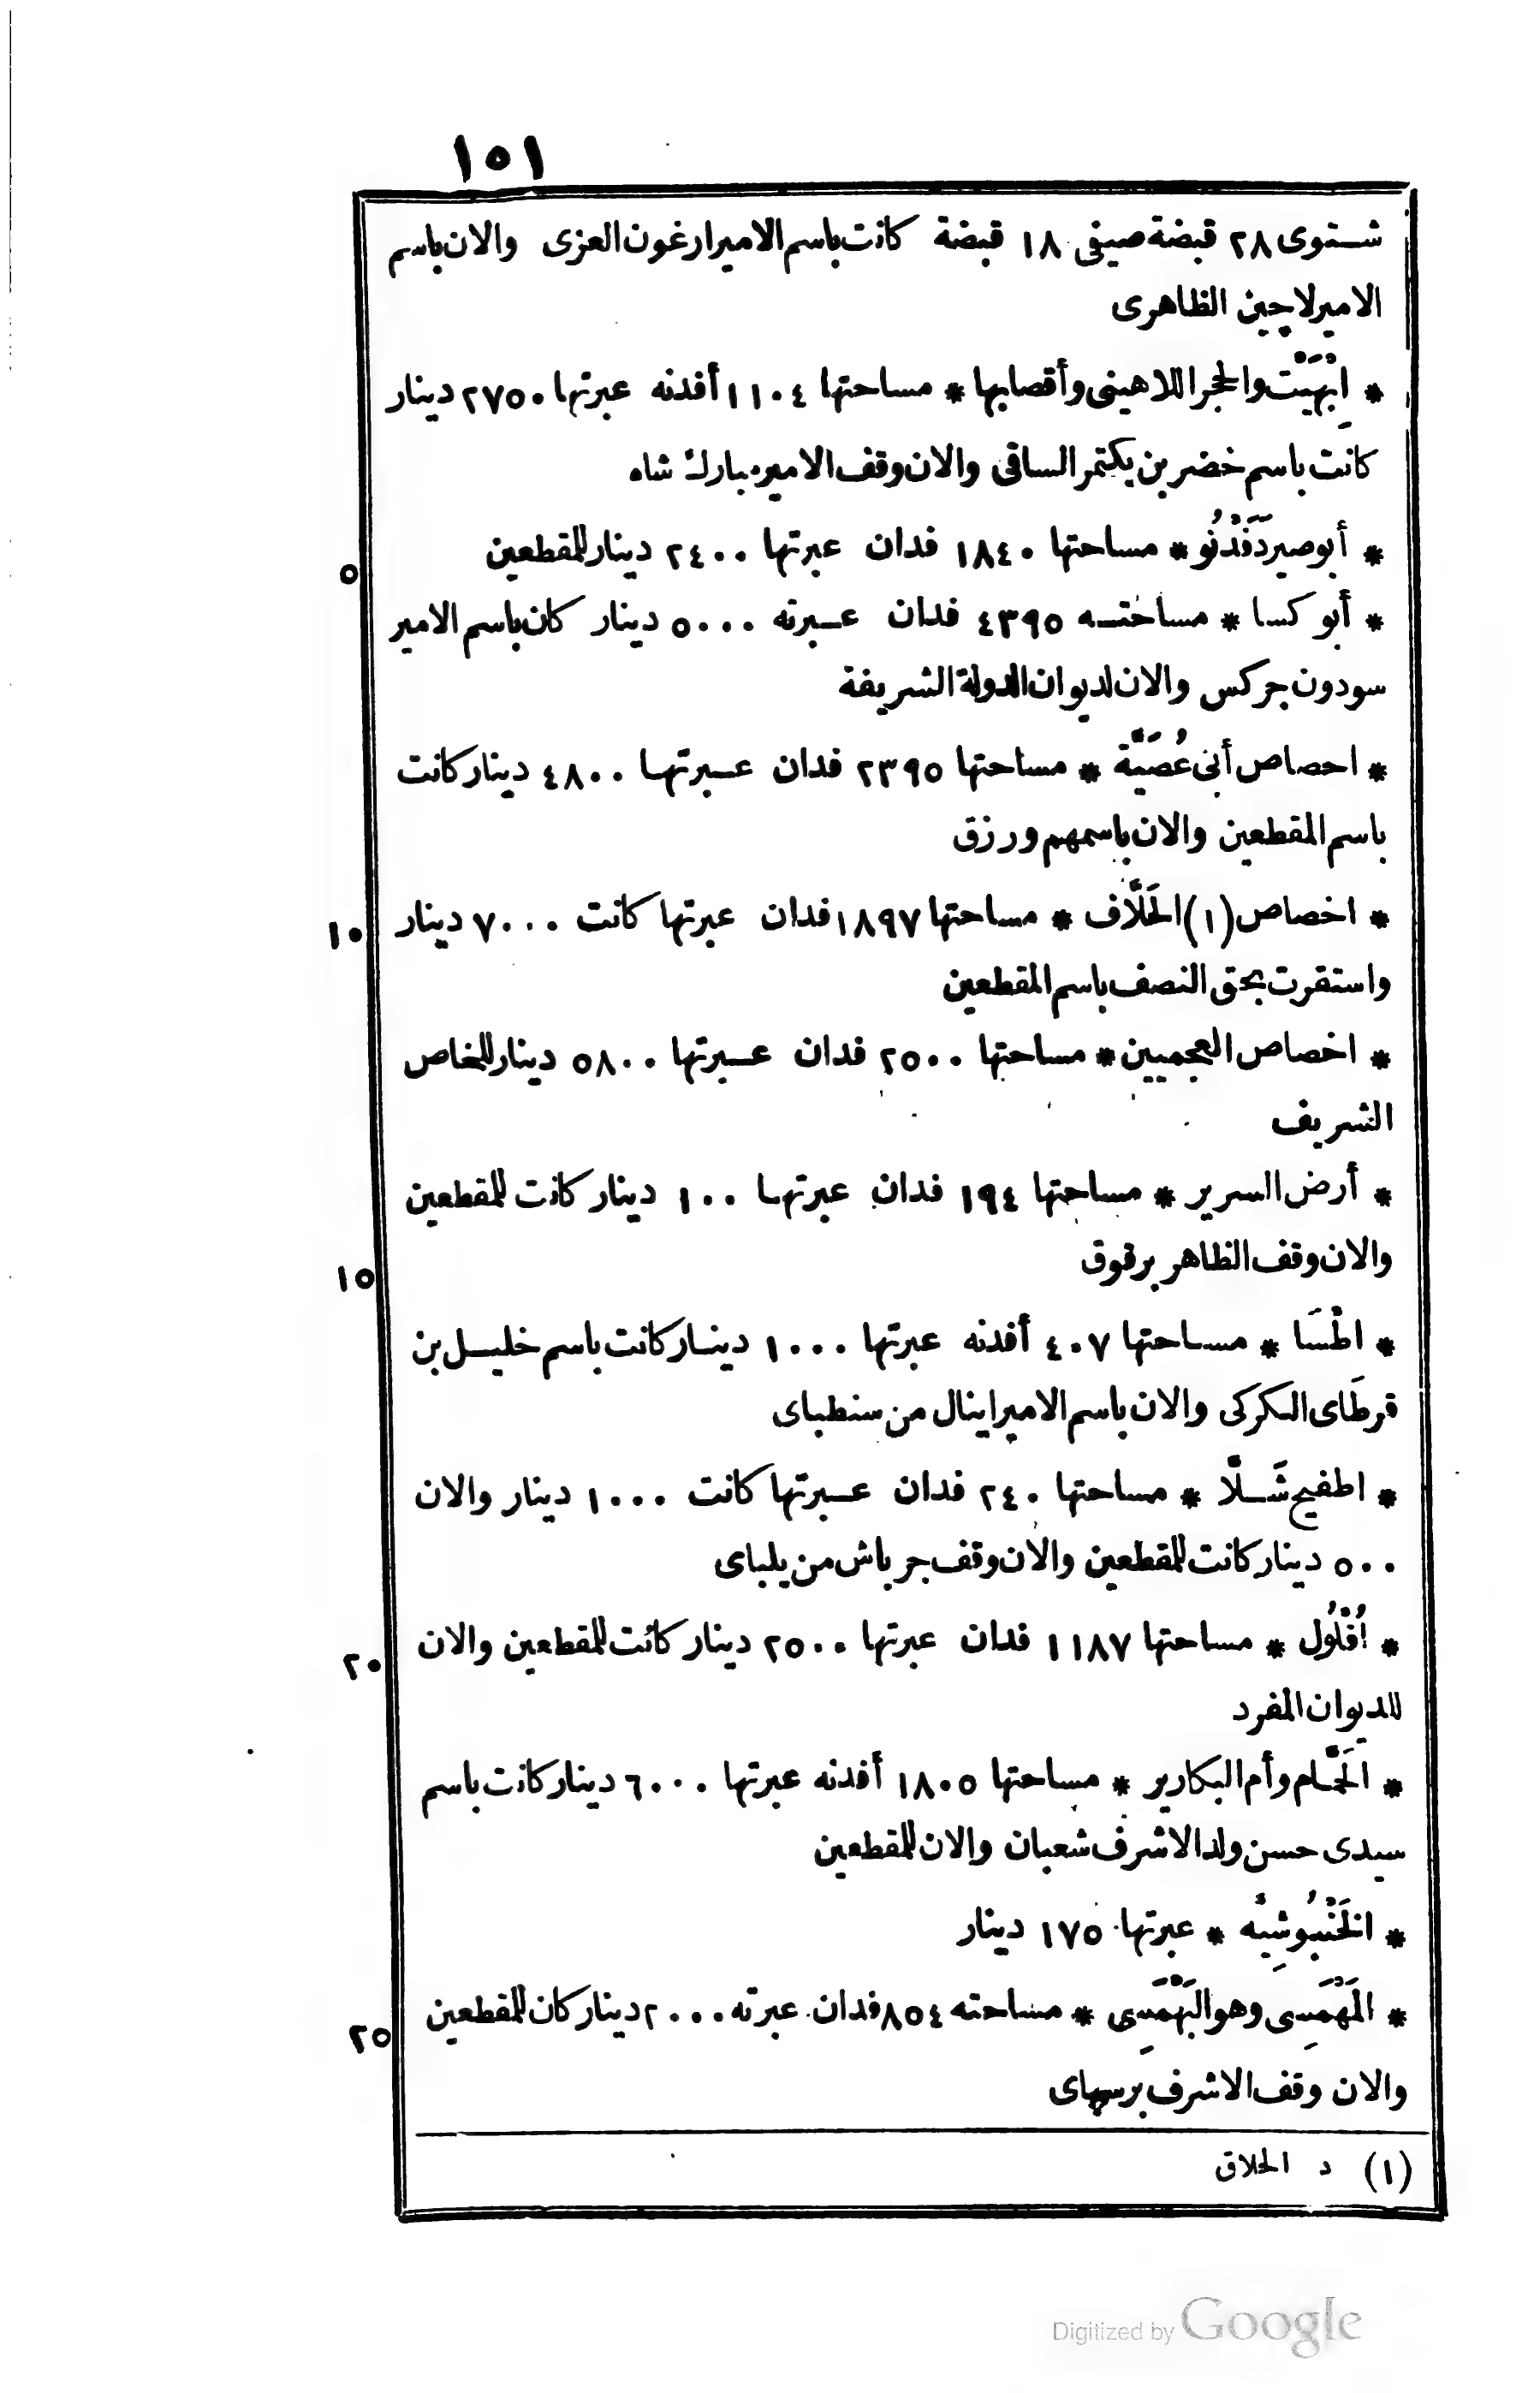 ١٥١
شتوى ٢٨ قبضة صيفى ١٨ قبضة كانت باسم الامير ارغون العزى والان باسم
الامير لاچين الظاهرى
* اِبْهَيْت والحجر اللاهينى وأقصابها * مساحتها ١١٠٤ أفدنه عبرتها ٢٧٥٠ دينار
كانت باسم خضر بن بكتمر الساقى والان وقف الامير مبارك شاه
* أبو صير دَفَدْنُو * مساحتها ١٨٤٠ فدان عبرتها ٢٤٠٠ دينار للمقطعين
٥
* أبو كسا * مساحته ٤٣٩٥ فدان عبرته ٥٠٠٠ دينار كان باسم الامير
سودون جركس والان لديوان الدولة الشريفة
* احصاص أبى عُصَيَّة * مساحتها ٢٣٩٥ فدان عبرتها ٤٨٠٠ دينار كانت
باسم المقطعين والان باسمهم ورزق
* اخصاص (١) الحَلَّاف * مساحتها ١٨٩٧ فدان عبرتها كانت ٧٠٠٠ دينار
١٠
واستقرت بحق النصف باسم المقطعين
* اخصاص العجميين * مساحتها ٢٥٠٠ فدان عبرتها ٥٨٠٠ دينار للخاص
الشريف
* أرض السرير * مساحتها ١٩٤ فدان عبرتها ١٠٠ دينار كانت للمقطعين
والان وقف الظاهر برقوق
١٥
* اطْسَا * مساحتها ٤٠٧ أفدنه عبرتها ١٠٠٠ دينار كانت باسم خليل بن
قرطَاى الكركى والان باسم الامير اينال من سنطباى
* اطفيح شَلَّا * مساحتها ٢٤٠ فدان عبرتها كانت ١٠٠٠ دينار والان
٥٠٠ دينار كانت للمقطعين والان وقف جرباش من يلباى
* اُقْلُول * مساحتها ١١٨٧ فدان عبرتها ٢٥٠٠ دينار كانت للمقطعين والان
٢٠
للديوان المفرد
* الحَمَّام وأم البكارير * مساحتها ١٨٠٥ أفدنه عبرتها ٦٠٠٠ دينار كانت باسم
سيدى حسن ولد الاشرف شعبان والان للمقطعين
* الخَنْبُوشِيْه * عبرتها ١٧٥ دينار
* المَهْمَسِى وهو البَهْمَسِى * مساحته ٨٥٤ فدان عبرته ٢٠٠٠ دينار كان للمقطعين
٢٥
والان وقف الاشرف برسباى
(١) د الحلاق
Digitized by Google